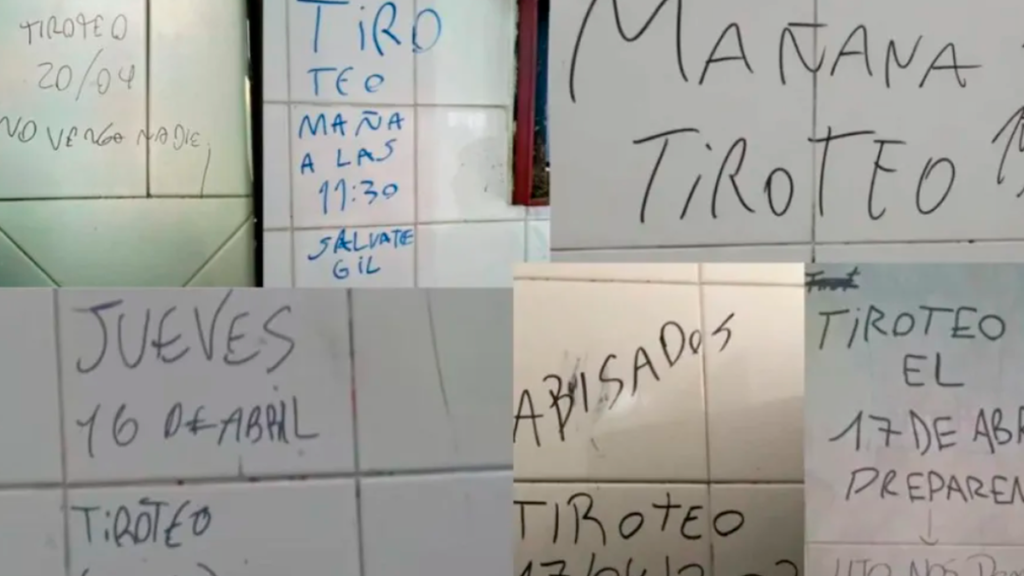 TIROTEO
20/04
NO VENGO NADIE
TIRO
TEO
MAÑA
A LAS
11:30
SALVATE
GIL
MAÑANA
TIROTEO
JUEVES
16 DE ABRIL
TIROTEO
ABISADOS
TIROTEO
TIROTEO
EL
17 DE ABR
PREPAREN